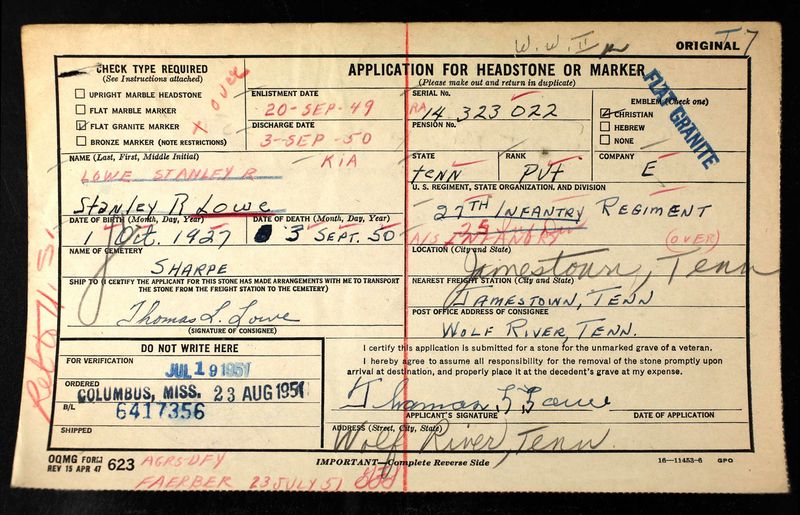 W.W.II
ORIGINAL 7
CHECK TYPE REQUIRED
(See Instructions attached)
UPRIGHT MARBLE HEADSTONE
FLAT MARBLE MARKER
FLAT GRANITE MARKER
BRONZE MARKER (NOTE RESTRICTIONS)
X over
APPLICATION FOR HEADSTONE OR MARKER
(Please make out and return in duplicate)
ENLISTMENT DATE
20-SEP-49
DISCHARGE DATE
3-SEP-50
KIA
SERIAL No.
RA 14 323 022
PENSION No.
EMBLEM (Check one)
CHRISTIAN
HEBREW
NONE
FLAT GRANITE
NAME (Last, First, Middle Initial)
LOWE STANLEY R
Stanley R Lowe
STATE
tenn
RANK
PVt
COMPANY
E
U. S. REGIMENT, STATE ORGANIZATION, AND DIVISION
27TH INFANTRY REGIMENT
25 INFANTRY
(OVER)
DATE OF BIRTH (Month, Day, Year)
1 Oct. 1927
DATE OF DEATH (Month, Day, Year)
3 SEPT. 50
NAME OF CEMETERY
SHARPE
LOCATION (City and State)
Jamestown, Tenn
SHIP TO (I CERTIFY THE APPLICANT FOR THIS STONE HAS MADE ARRANGEMENTS WITH ME TO TRANSPORT THE STONE FROM THE FREIGHT STATION TO THE CEMETERY)
Thomas L. Lowe
(SIGNATURE OF CONSIGNEE)
NEAREST FREIGHT STATION (City and State)
JAMESTOWN, TENN
POST OFFICE ADDRESS OF CONSIGNEE
WOLF RIVER, TENN.
Ret to U.S.
DO NOT WRITE HERE
FOR VERIFICATION
JUL 19 1951
ORDERED
COLUMBUS, MISS. 23 AUG 1951
B/L
6417356
SHIPPED
I certify this application is submitted for a stone for the unmarked grave of a veteran.
I hereby agree to assume all responsibility for the removal of the stone promptly upon
arrival at destination, and properly place it at the decedent's grave at my expense.
APPLICANT'S SIGNATURE
DATE OF APPLICATION
ADDRESS (Street, City, State)
Wolf River, Tenn.
OQMG FORM
REV 15 APR 47 623
AGRS-DFY
FAERBER 23 JULY 51
IMPORTANT—Complete Reverse Side
16—11453-6 GPO